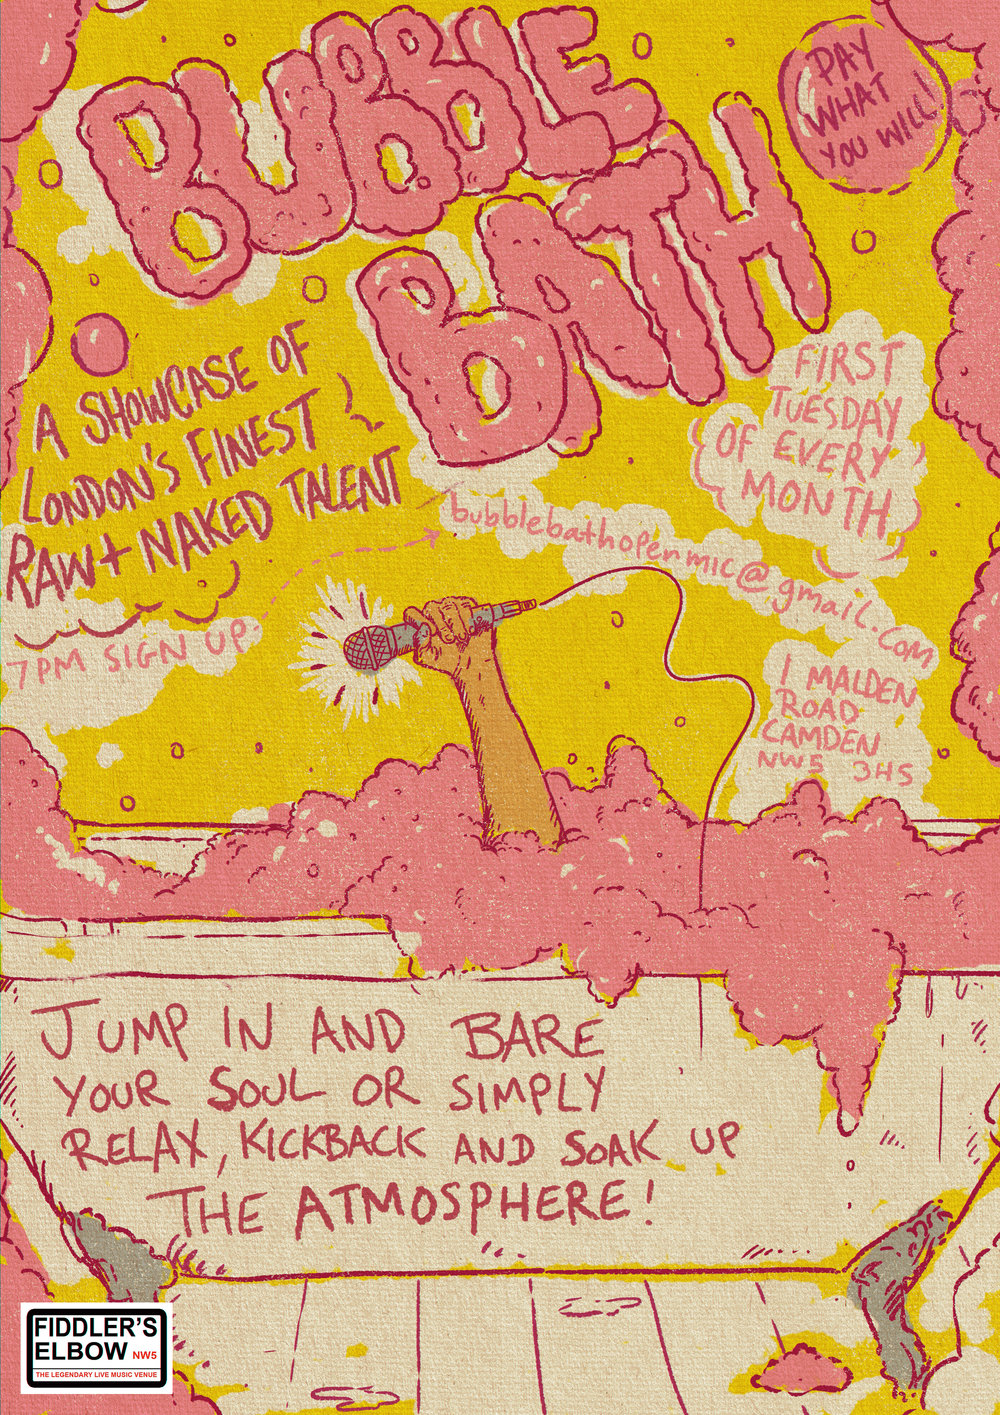 BUBBLE
BATH
PAY
WHAT
YOU WILL!
A SHOWCASE OF
LONDON'S FINEST
RAW + NAKED TALENT
FIRST
TUESDAY
OF EVERY
MONTH
7PM SIGN UP
bubblebathopenmic@gmail.com
1 MALDEN
ROAD
CAMDEN
NW5 3HS
JUMP IN AND BARE
YOUR SOUL OR SIMPLY
RELAX, KICKBACK AND SOAK UP
THE ATMOSPHERE!
FIDDLER'S
ELBOW NW5
THE LEGENDARY LIVE MUSIC VENUE